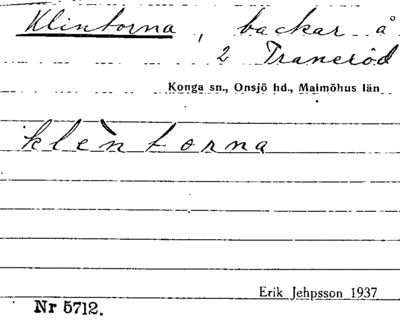 Klintorna, backar å
2 Traneröd
Konga sn., Onsjö hd., Malmöhus län
klèntorna
Erik Jehpsson 1937
Nr 5712.